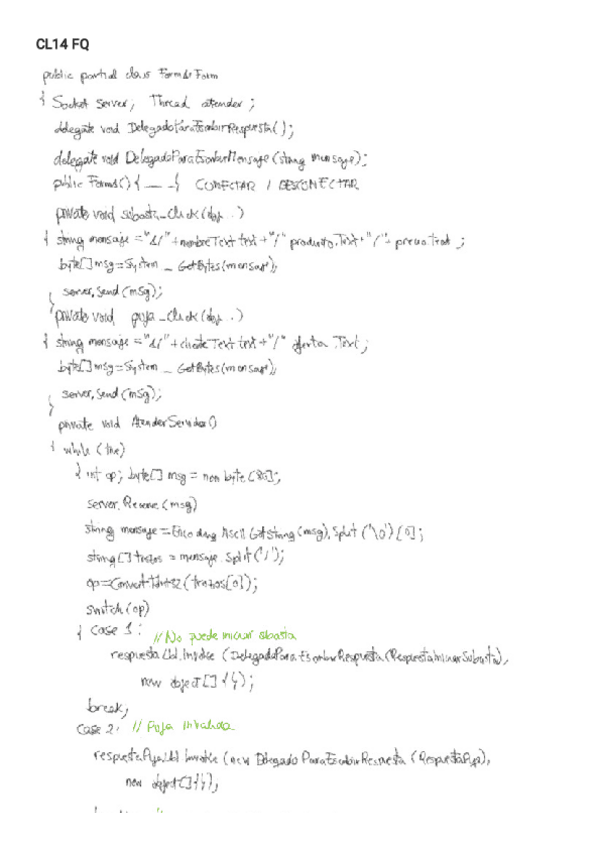 CL14 FQ
public partial class Form1: Form
{ Socket server; Thread atender;
delegate void DelegadoParaEscribirRespuesta();
delegate void DelegadoParaEscribirMensaje (string mensaje);
public Form1() { ___ } CONECTAR / DESCONECTAR
private void subasta_Click (obj..)
{ string mensaje = "1/" + nombreText.Text + "/" producto.Text + "/" + precio.Text ;
byte[] msg = System _ GetBytes(mensaje);
server.Send (msg);
}
private void puja_Click (obj..)
{ string mensaje = "2/" + cliente Text.text + "/" oferta.Text;
byte[] msg = System _ GetBytes(mensaje);
server.Send (msg);
}
private void AtenderServidor()
{ while (true)
{ int op; byte[] msg = new byte[80];
server.Receive (msg)
string mensaje = Encoding.Ascii.GetString(msg).Split ('\0')[0];
string[] trozos = mensaje.Split('/');
op = Convert.ToInt32 (trozos[0]);
switch (op)
{ case 1: //No puede iniciar subasta
respuestaLbl.Invoke (DelegadoParaEscribirRespuesta(RespuestaIniciarSubasta),
new object[] {});
break;
case 2: // Puja invalida
respuestaPujaLbl.Invoke (new DelegadoParaEscribirRespuesta (RespuestaPuja),
new object[]{});